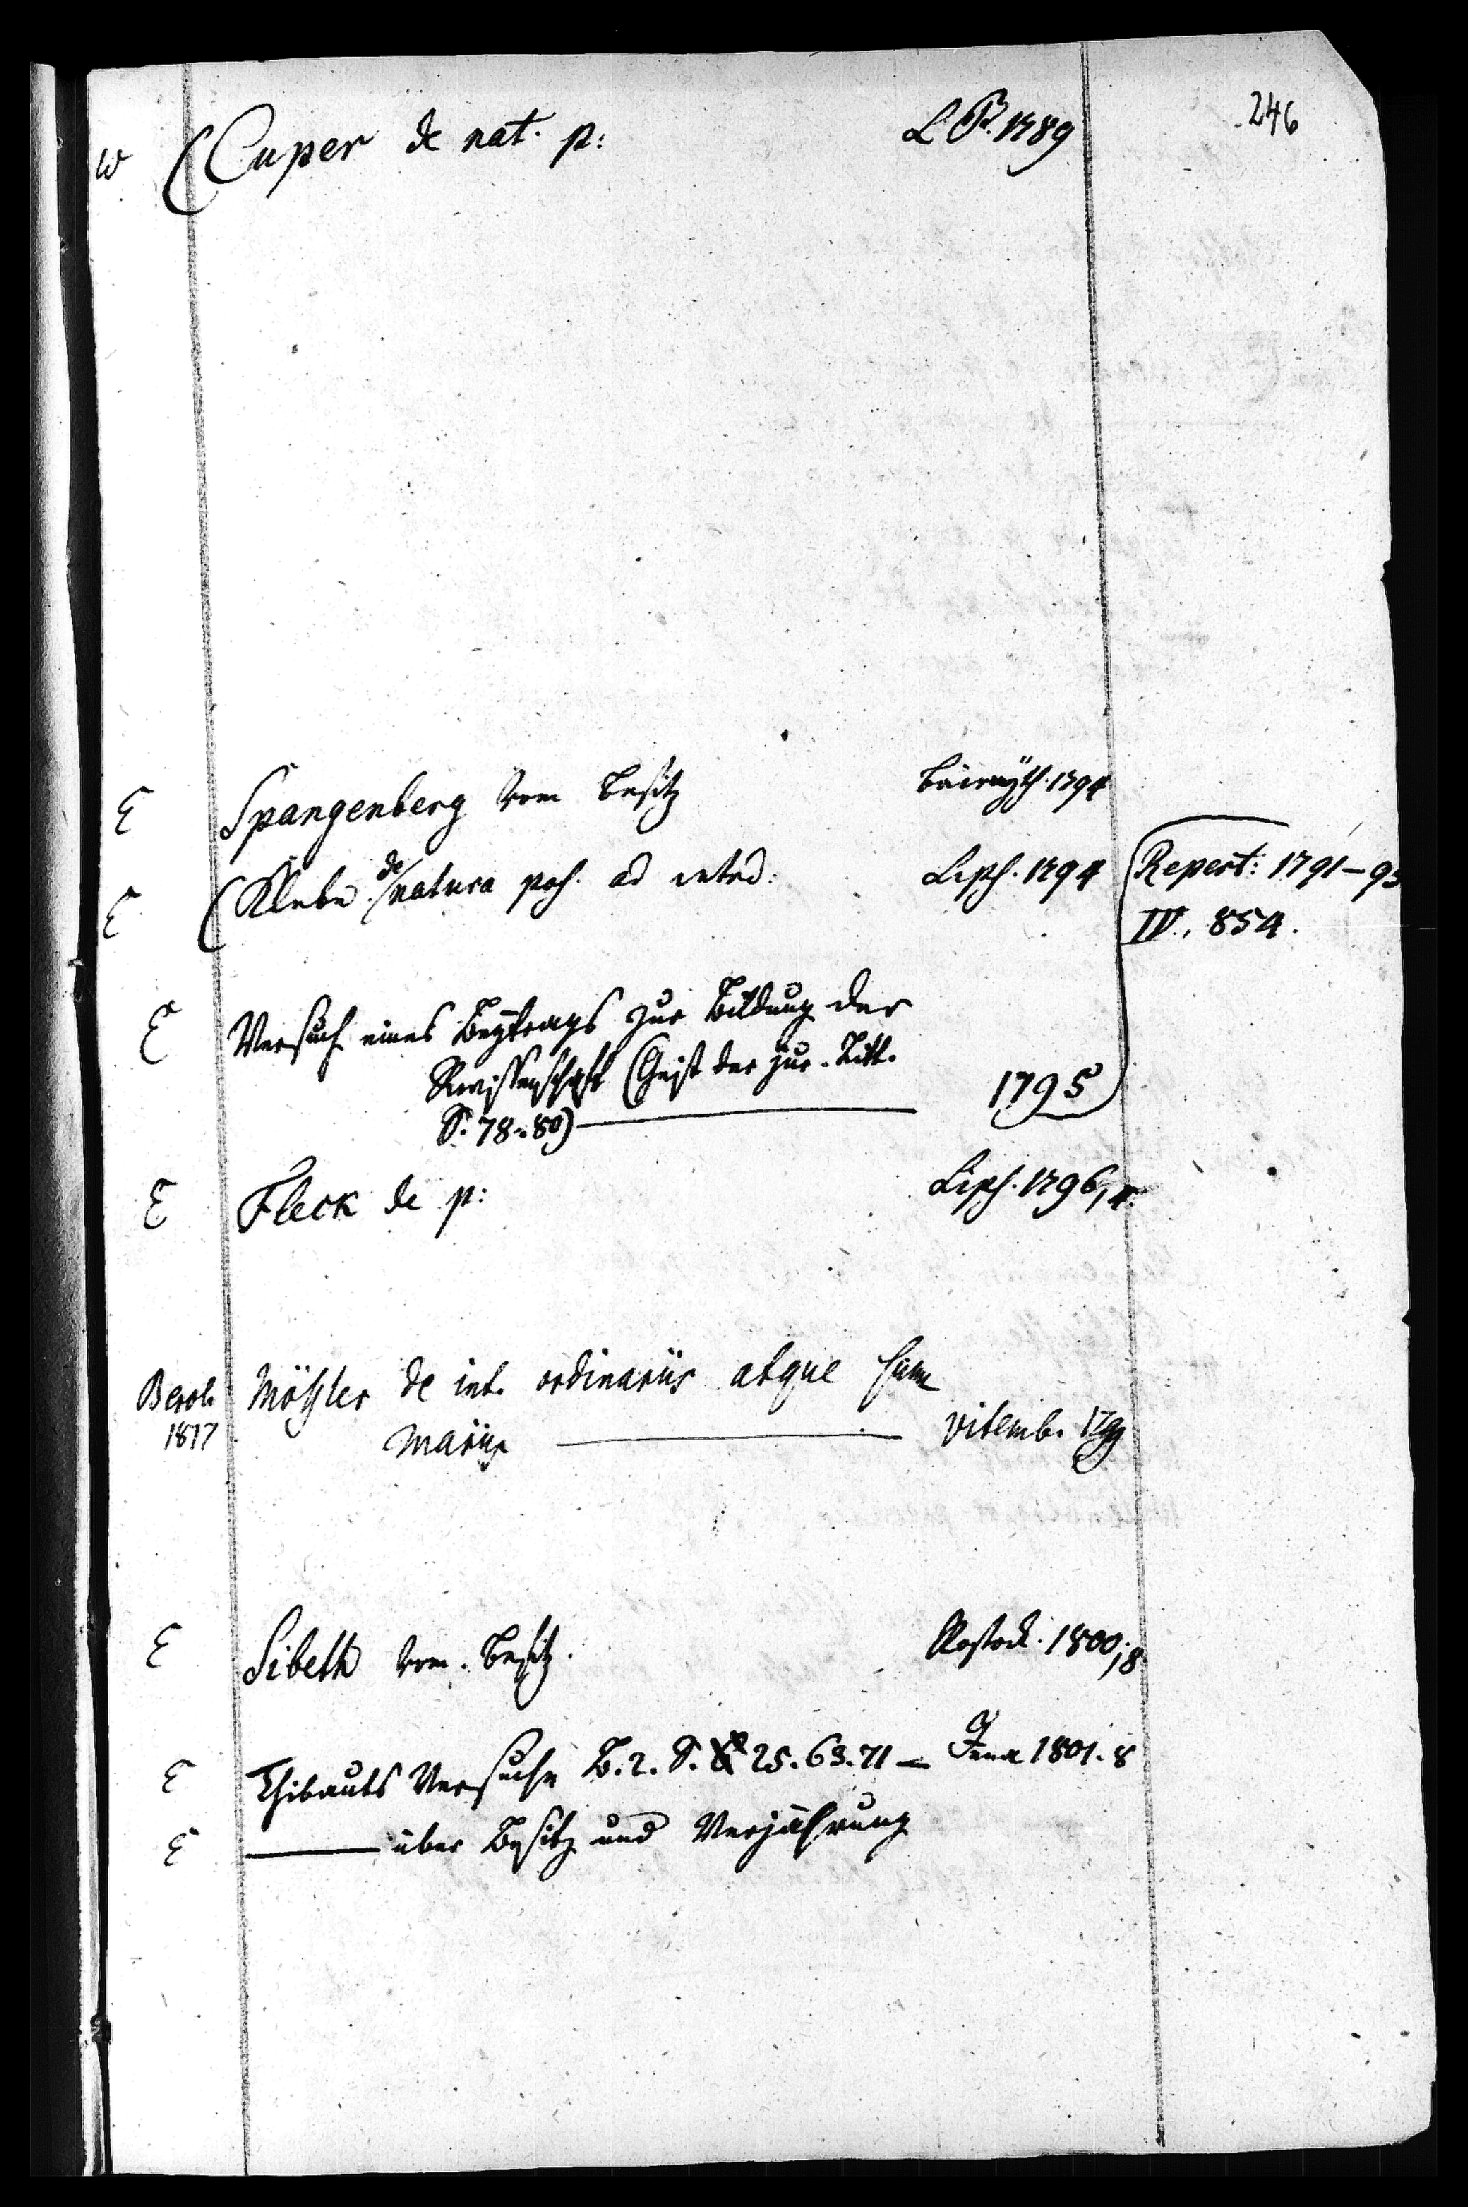 246
W (Cuper de nat. p: L B. 1789
E Spangenberg vom Besitz Baireuth. 1794
E (Klebe de natura poss. ad interd: Lips. 1794 (Repert: 1791–95
IV. 854.
E Versuch eines Beytrags zur Bildung der
Rwissenschaft (Geist der jur. Litt.
S. 78-80) — 1795
E Fleck de p: Lips. 1796, 4.
Berol. 1817 Mößler de int. ordinariis atque sum
mariis — Vitemb. 1799
E Sibeth vom Besitz. Rostock. 1800, 8
E Thibauts Versuche B. 2. S. 25. 63. 71 – Jena 1801. 8
E — über Besitz und Verjährung